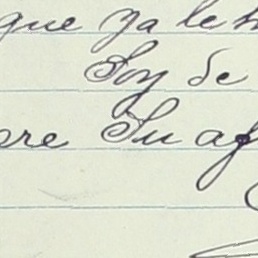 que ya le h
Soy de
ore Su af